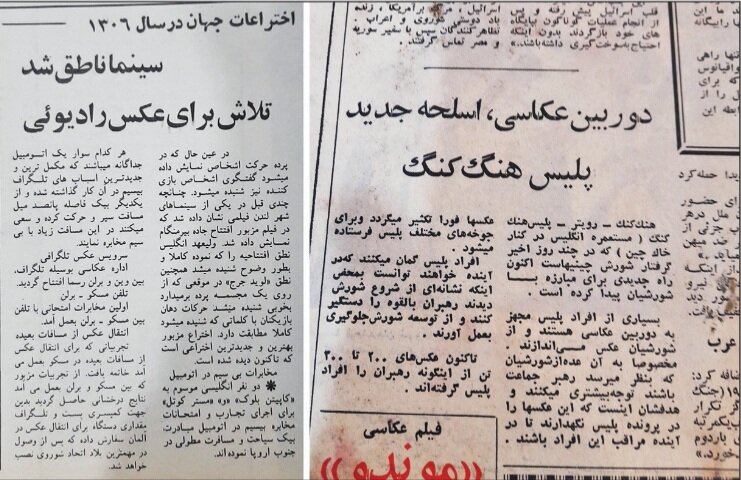 اختراعات جهان در سال ۱۳۰۶
سینما ناطق شد
تلاش برای عکس رادیوئی
در عین حال که در
پرده حرکت اشخاص نمایش داده
میشود گفتگوی اشخاص بازی
کننده نیز شنیده میشود. چنانچه
چندی قبل در یکی از سینماهای
شهر لندن فیلمی نشان داده شد که
در فیلم مزبور افتتاح جاده بیرمنگام
نمایش داده شد. ولیعهد انگلیس
نطق افتتاحیه را که نموده کاملا و
بطور وضوح شنیده میشد همچنین
نطق «لوید جرج» در موقعی که از
روی یک مجسمه پرده برمیدارد
بخوبی شنیده میشد حرکات دهان
بازیکنان با کلماتی که شنیده میشود
کاملا مطابقت دارد. اختراع مزبور
بهترین و جدیدترین اختراعی است
که تاکنون دیده شده است.
مخابرات بی سیم در اتومبیل
✱ دو نفر انگلیسی موسوم به
«کاپیتن بلوک» و «مستر کوتل»
برای اجرای تجارب و امتحانات
مخابره بیسیم در اتومبیل مبادرت
بیک سیاحت و مسافرت مطولی در
جنوب اروپا نموده‌اند.
هر کدام سوار یک اتومبیل
جداگانه میباشند که مکمل ترین و
جدیدترین اسباب های تلگراف
بیسیم در آن کار گذاشته شده و از
یکدیگر بیک فاصله پانصد میل
مسافت سیر و حرکت کرده و سعی
میکنند در این مسافت زیاد با بی
سیم مخابره نمایند.
سرویس عکس تلگرافی
اداره عکاسی بوسیله تلگراف،
بین وین و برلن رسما افتتاح گردید.
تلفن مسکو - برلن
اولین مخابرات امتحانی با تلفن
بین مسکو - برلن بعمل آمد.
انتقال عکس از مسافات بعیده
تجربیاتی که برای انتقال عکس
از مسافات بعیده در مسکو بعمل می
آمد خاتمه یافت. از تجربیات مزبور
که بین مسکو و برلن بعمل می آمد
نتایج درخشانی حاصل گردید بدین
جهت کمیسری پست و تلگراف
مقداری دستگاه برای انتقال عکس در
آلمان سفارش داده که پس از وصول
در مهمترین بلاد اتحاد شوروی نصب
خواهد شد.
قلب اسرائیل پیش رفته و پس
از انجام عملیات گوناگون بپایگاه
های خود بازگردند بدون اینکه
احتیاج بسوخت‌گیری داشته‌باشند.»
یاد دوستی شوروی و اعراب.
تظاهرکنندگان سپس با سفیر سوریه
و مصر تماس گرفتند.
دوربین عکاسی، اسلحه جدید
پلیس هنگ کنگ
هنگ‌کنگ - رویتر - پلیس‌هنگ
کنگ ( مستعمره انگلیس در کنار
خاک چین ) که در چند روز اخیر
گرفتار شورش چینیهاست اکنون
راه جدیدی برای مبارزه بــــا
شورشیان پیدا کرده است .
بسیاری از افراد پلیس مجهز
به دوربین عکاسی هستند و از
شورشیان عکس می‌اندازند .
مخصوصا به آن عده‌ازشورشیان
که بنظر میرسد رهبر جماعت
باشند توجه‌بیشتری میکنند و
هدفشان اینست که این عکسها را
در پرونده پلیس نگهدارند تا در
آینده مراقب این افراد باشند .
عکسها فورا تکثیر میگردد وبرای
جوخه‌های مختلف پلیس فرستاده
میشود .
افراد پلیس گمان میکنند که‌در
آینده خواهند توانست بمحض
اینکه نشانه‌ای از شروع شورش
دیدند رهبران بالقوه را دستگیر
کنند و از توسعه شورش‌جلوگیری
بعمل آورند .
تاکنون عکس‌های ۲۰۰ تا ۳۰۰
تن از اینگونه رهبران را افراد
پلیس گرفته‌اند .
فیلم عکاسی
«موندو»